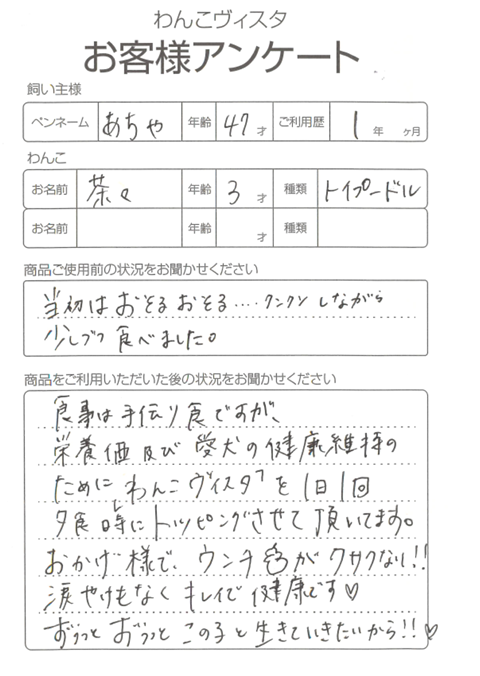 わんこヴィスタ
お客様アンケート
飼い主様
ペンネーム あちゃ 年齢 47才 ご利用歴 1年 ヶ月
わんこ
お名前 茶々 年齢 3才 種類 トイプードル
お名前 年齢 才 種類
商品ご使用前の状況をお聞かせください
当初はおそるおそる....クンクンしながら
少しづつ食べました。
商品をご利用いただいた後の状況をお聞かせください
食事は手伝り食ですが、
栄養価及び愛犬の健康維持の
ためにわんこヴィスタを1日1回
夕食時にトッピングさせて頂いてます。
おかげ様で、ウンチ がクサクない!!
涙やけもなくキレイで健康です♡
ずうっとずうっとこの子と生きていきたいから!!♡